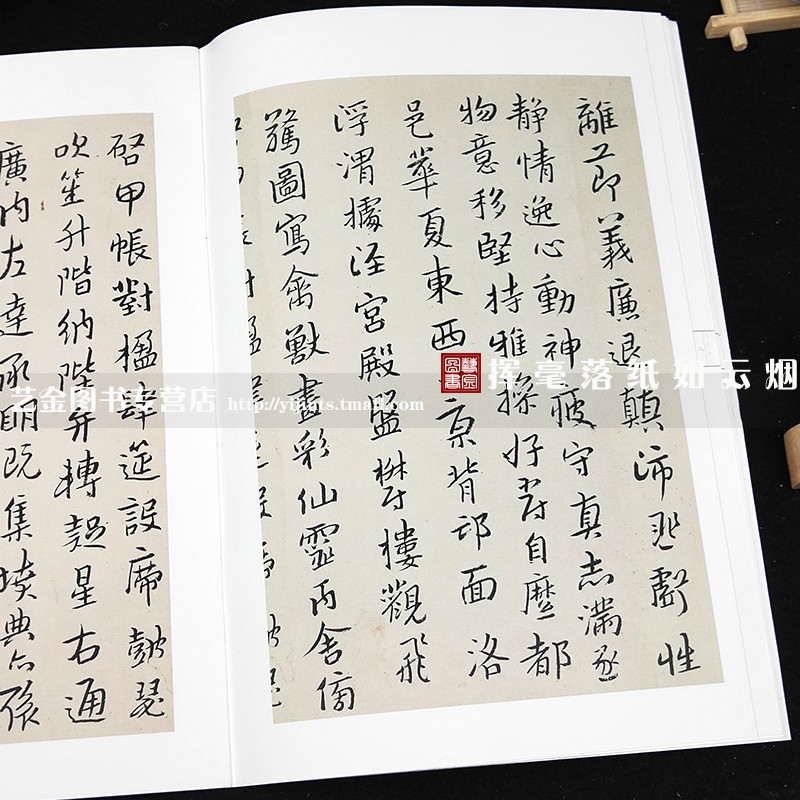 離節義廉退顛沛匪虧性
靜情逸心動神疲守真志滿逐
物意移堅持雅操好爵自縻都
邑華夏東西京背邙面洛
浮渭據涇宮殿盤鬱樓觀飛
驚圖寫禽獸畫彩仙靈丙舍傍
啓甲帳對楹肆筵設席鼓瑟
吹笙升階納陛弁轉疑星右通
廣內左達承明既集墳典亦聚
藝金圖書
挥毫落纸如云烟
艺金图书专营店 http://yijints.tmall.com/